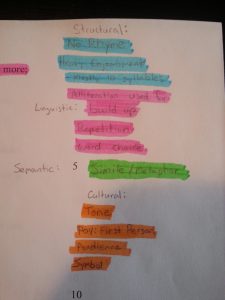 Structural:
No Rhyme
Heavy Enjambment
- Mostly 10 syllables
more;
Alliteration used for
Linguistic: build up
Repetition
Word choice
Semantic: 5 Simile / Metaphor
Cultural:
Tone
Pov: First Person
Audience
Symbol
10